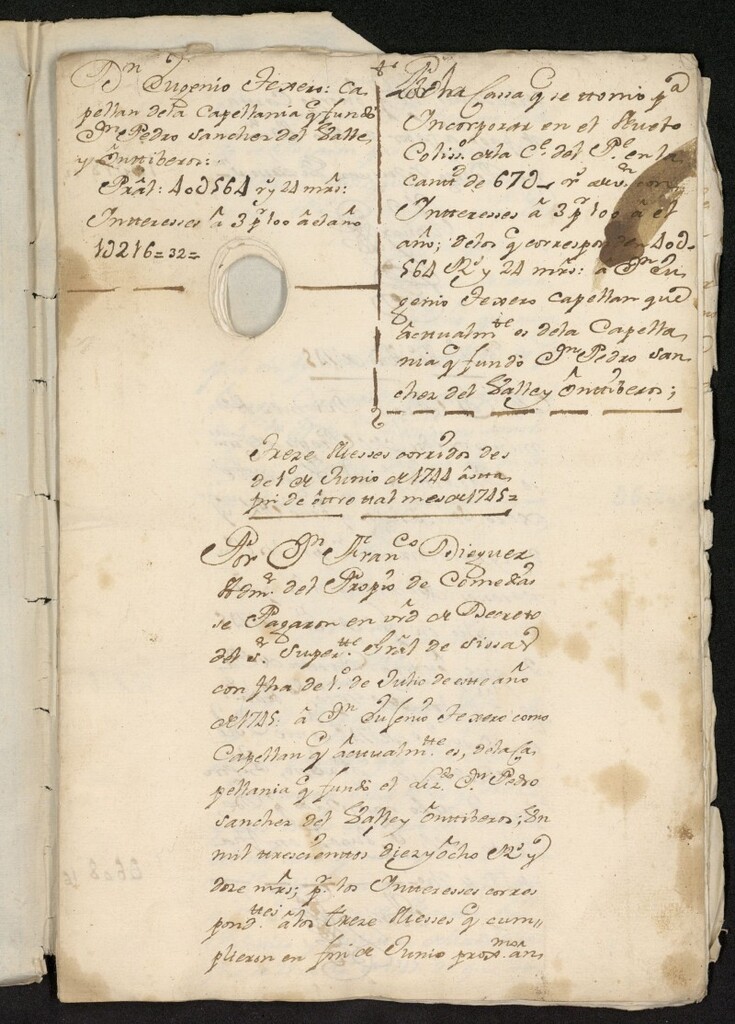 Dn Eugenio Texero: Ca
pellan dela Capellania q fundò
Dn Pedro Sanchez del Valle,
y Ônttiberos:
Prâl: 40U564 rs y 24 mrs:
Inttereses â 3 p 100 âl año
1U216=32=
Casa q se ttomò pa
Incorporar en el Nuebo
Coliso dela Ce del Pe en la
cantd de 67U rs de von con
Inttereses â 3 p 100 â el
año; delos q corresponden 40U
564 Rs y 24 mrs: a Dn Eu
genio Texero capellan que
âctualmtte es dela Capella
nia q fundò Dn Pedro San
chez del Valle y Ônttiberos;
Treze Messes corridos des
de 1º de Junio de 1744 âsta
fin de ôttro ttal mes de 1745=
Por Dn Franco Dieguez
Admr del Propio de Comedias
se Pagaron en vrd de Decreto
del sr Supertte Grâl de Sissas
con fha de 1º de Julio de este año
de 1745 â Dn Eugenio Texero como
Capellan q âctualmtte es, dela Ca
pellania q fundò el Lizdo Dn Pedro
Sanchez del Valle y Ônttiberos; Un
mil ttrescienttos diez y ôcho Rs y
doze mrs; p. los Inttereses corres
pondttes âlos treze Messes q cum
plieron en fin de Junio proxmo an